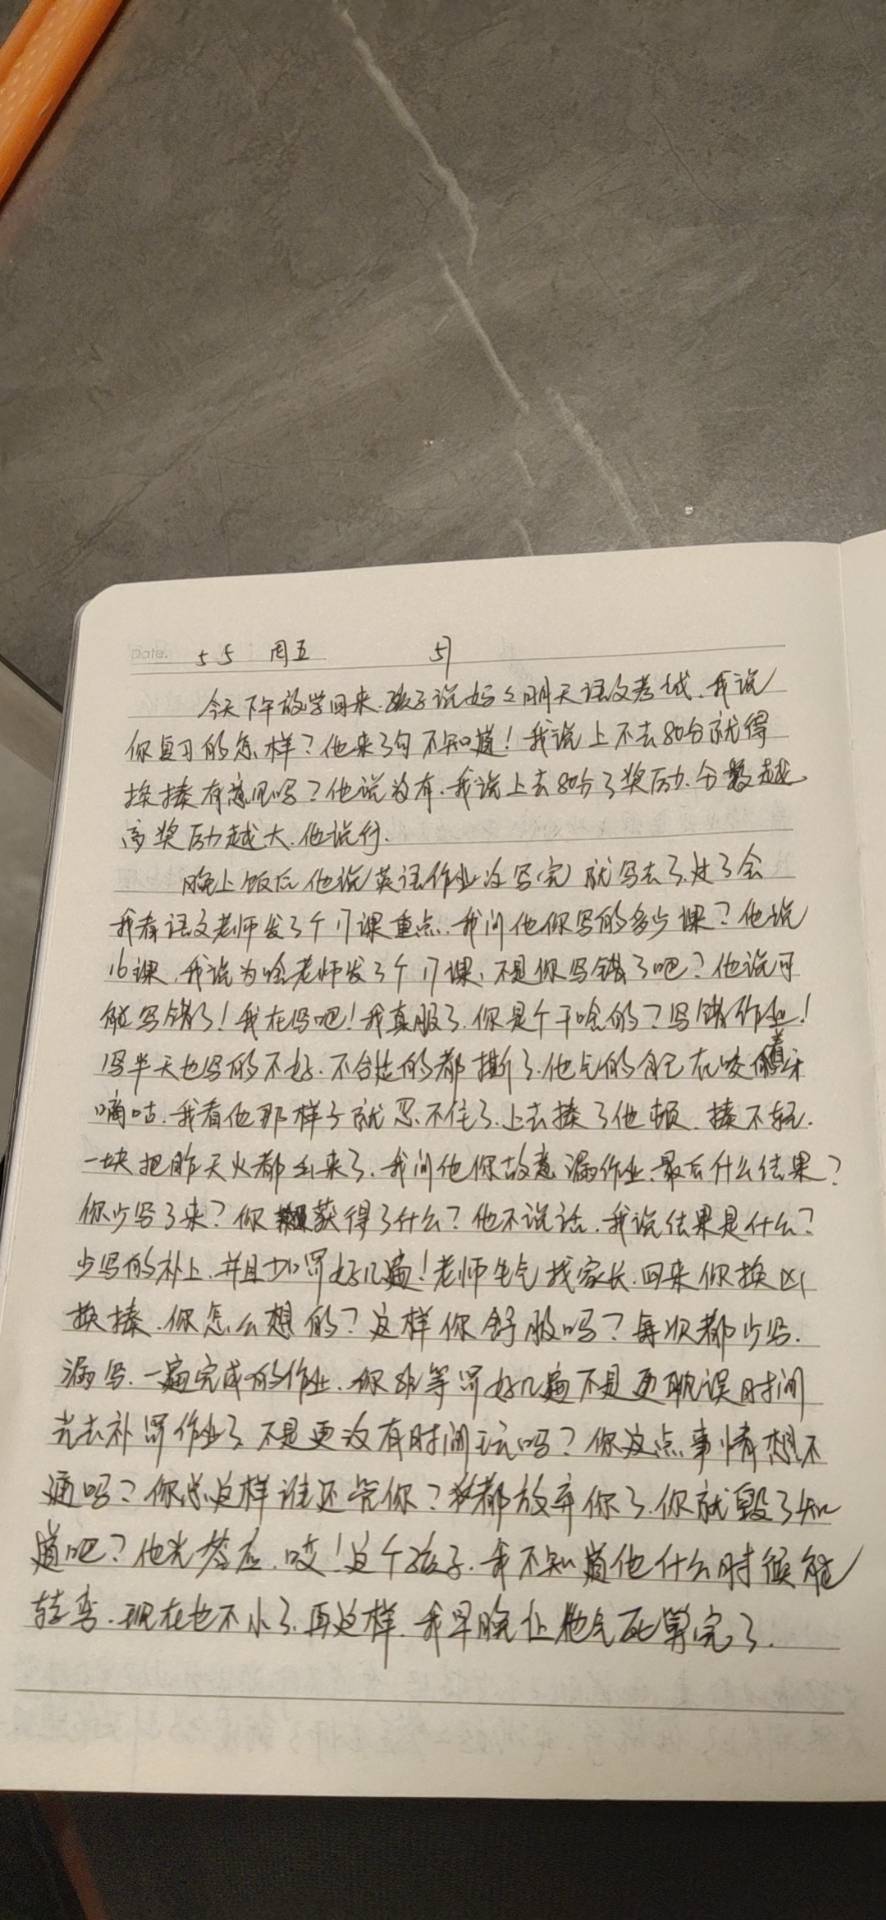 Date. 5 5 周五
今天下午放学回来.孩子说妈妈明天语文考试.我说
你复习的怎样?他来了句不知道!我说上不去80分就得
挨揍有意见吗?他说没有.我说上去80分了奖励.分数越
高奖励越大.他说行.
晚上饭后他说英语作业没写完 就写去了.过了会
我看语文老师发了个17课重点.我问他你写的多少课?他说
16课.我说为啥老师发了个17课,不是你写错了吧?他说可
能写错了!我在吗吧!我真服了.你是个干啥的?写错作业!
写半天也写的不好.不合适的都撕了.他气的自己在咬着牙
嘀咕.我看他那样子就忍不住了.上去揍了他顿.揍不轻.
一块把昨天火都出来了.我问他你故意漏作业.最后什么结果?
你少写了来?你获得了什么?他不说话.我说结果是什么?
少写的补上.并且加写好几遍!老师生气找家长.回来你挨凶
挨揍.你怎么想的?这样你舒服吗?每次都少写.
漏写.一遍完成的作业.你非等写好几遍不是更耽误时间
光去补写作业了.不是更没有时间玩吗?你这点事情想不
通吗?你总这样谁还管你?都放弃你了.你就毁了知
道吧?他光答应.哎!这个孩子.我不知道他什么时候能
转弯.现在也不小了.再这样.我早晚让他气死算完了.